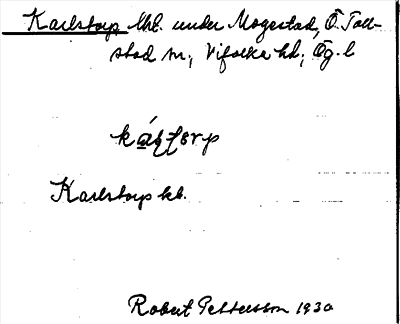 Karlstorp lht. under Mogestad, Ö. Toll-
stad sn, Vifolka hd, Ög. l
Karlstorp kb.
Robert Pettersson 1930